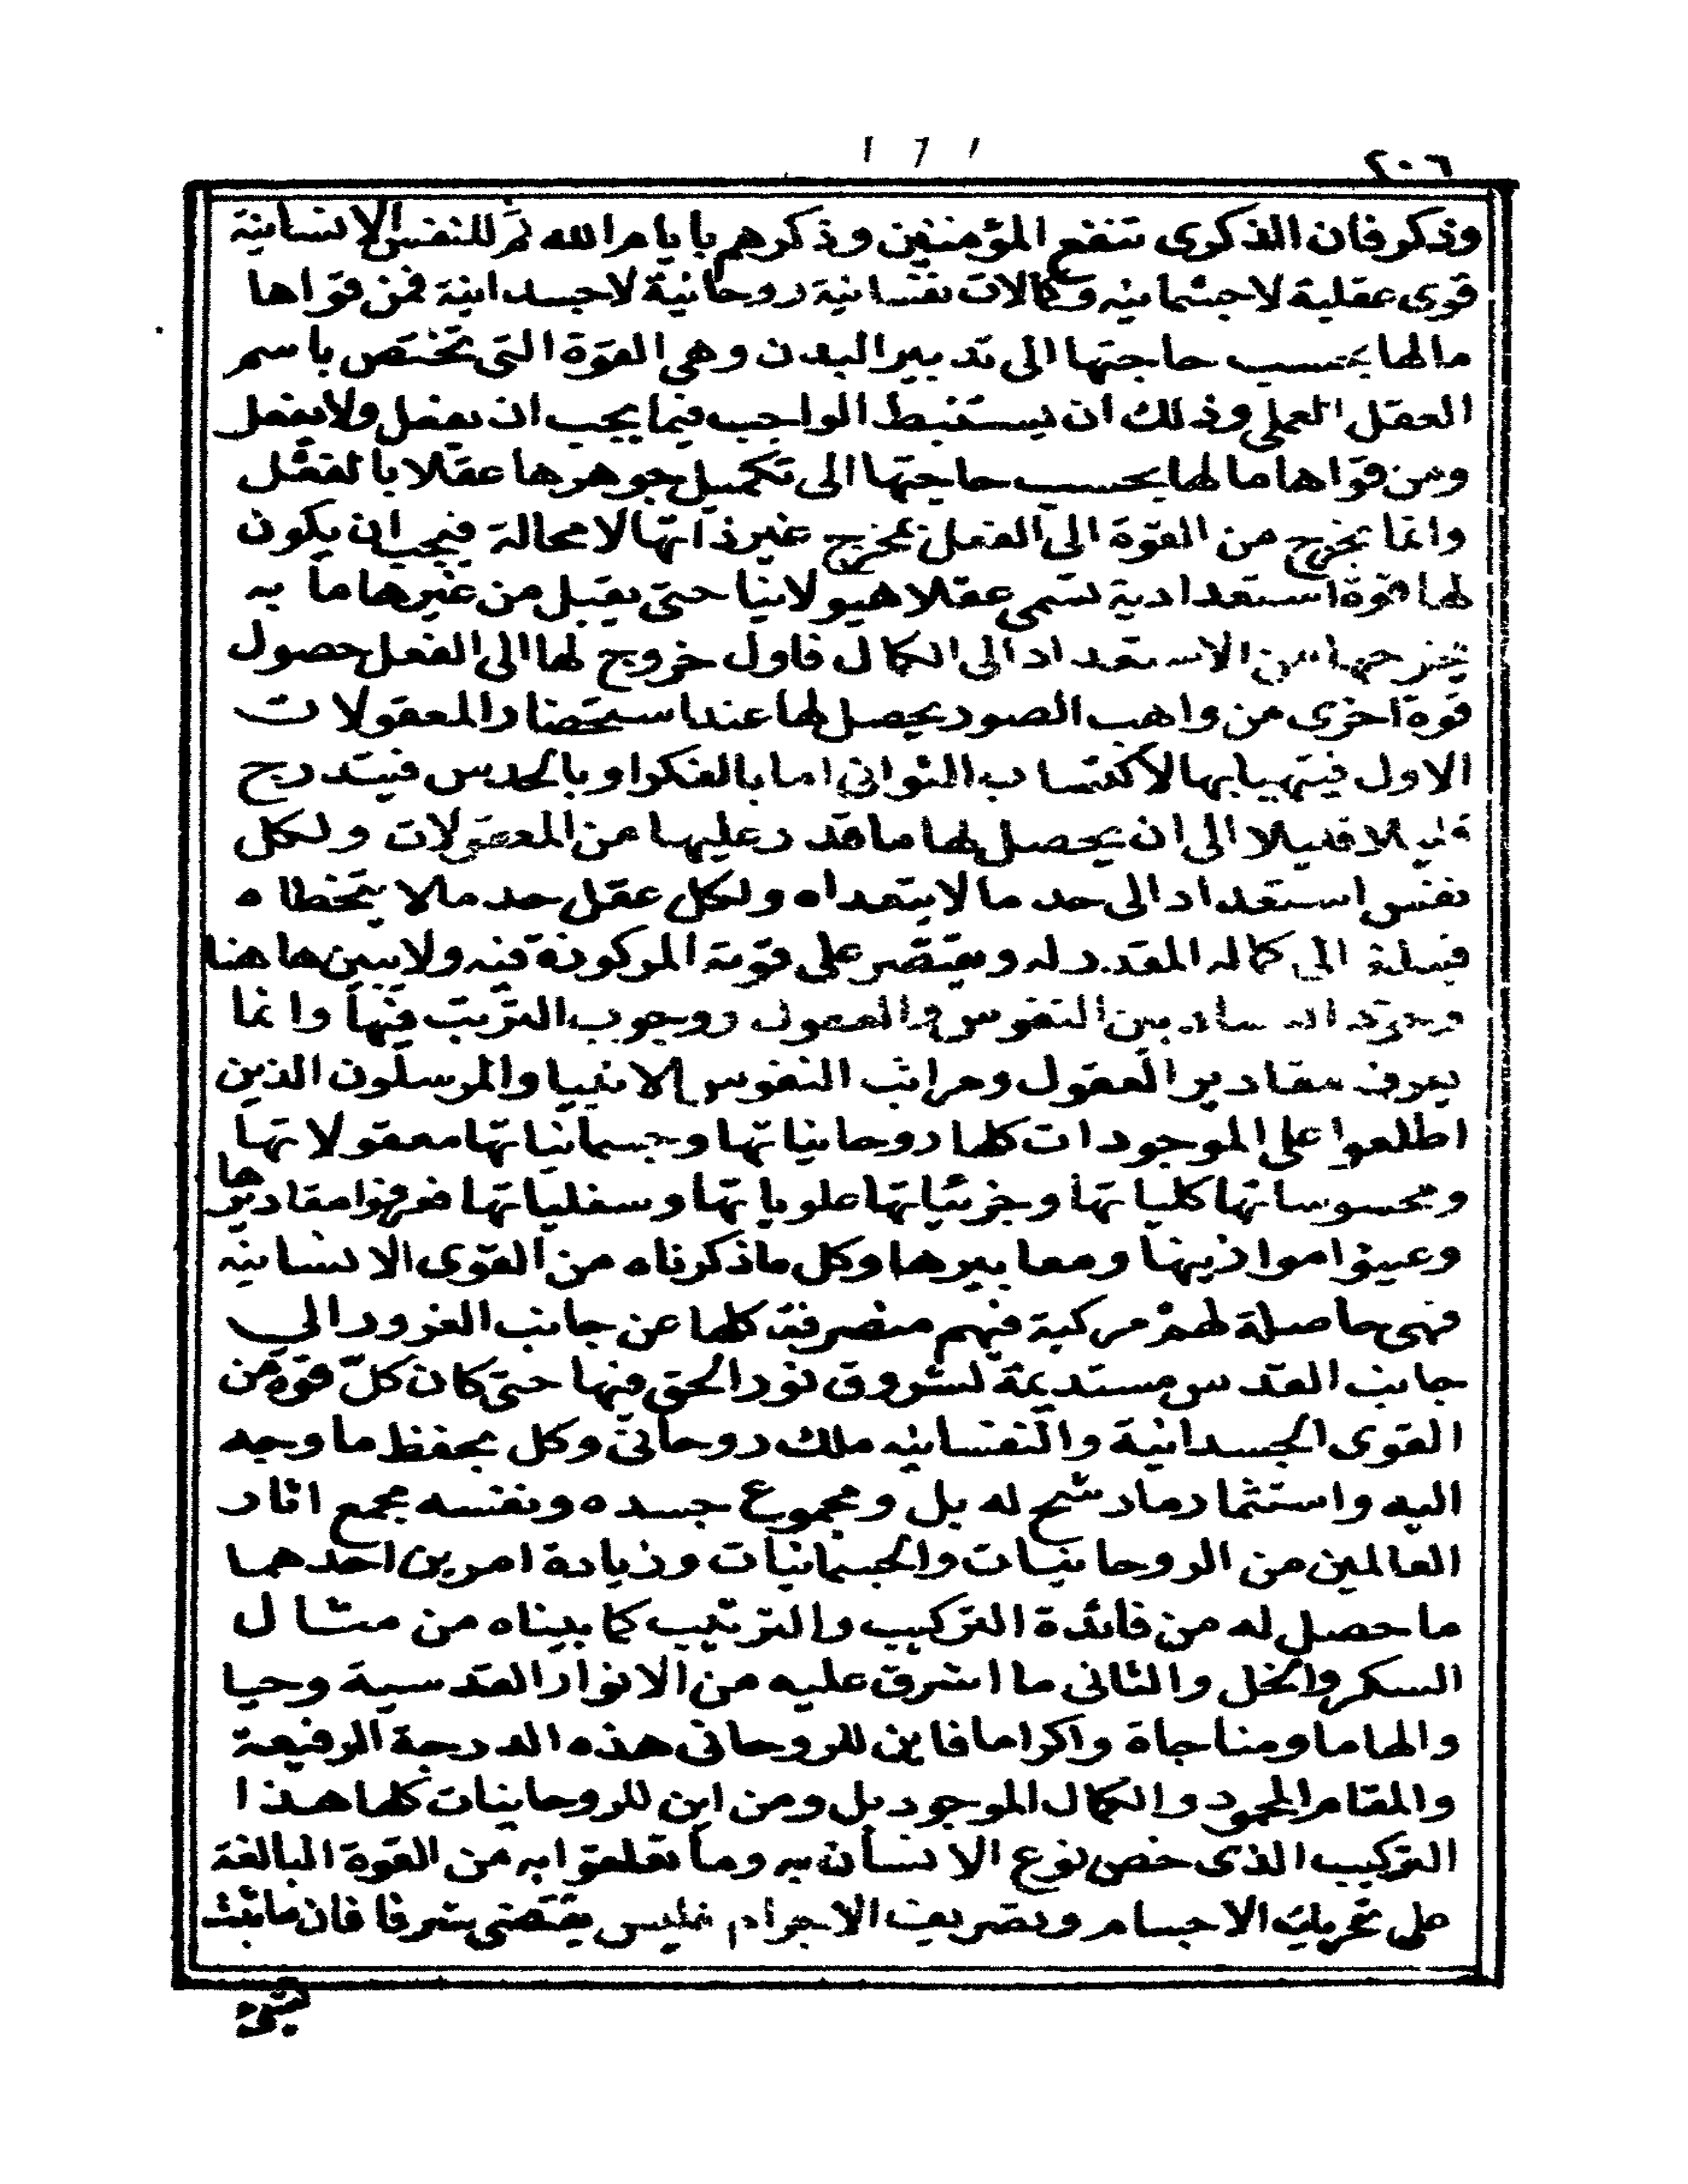 ٢٠٦
١٦١
وذكر فان الذكرى تنفع المؤمنين وذكرهم بايام الله ثم للنفس الانسانية
قوى عقلية لا جسمانيه وكمالات نفسانية روحانية لا جسدانية فمن قواها
مالها بحسب حاجتها الى تدبير البدن وهي القوة التي تختص باسم
العقل العملي وذلك ان يستنبط الواجب فيما يجب ان يفعل ولا يفعل
ومن قواها ما لها بحسب حاجتها الى تكميل جوهرها عقلا بالفعل
وانما يخرج من القوة الى الفعل بمخرج غير ذاتها لا محالة فيجب ان يكون
لها قوة استعدادية تسمى عقلا هيولانيا حتى يقبل من غيرها ما به
يخرجها من الاستعداد الى الكمال فاول خروج لها الى الفعل حصول
قوة اخرى من واهب الصور يحصل لها عند استحضار المعقولات
الاول فيتهيا بها لاكتساب الثواني اما بالفكر او بالحدس فيتدرج
قليلا قليلا الى ان يحصل لها ما قدر عليها من المعقولات ولكل
نفس استعداد الى حد ما لا يتعداه ولكل عقل حد ما لا يتخطاه
فيبلغ الى كماله المقدر له ويقتصر على قوته المركوزة فيه ولا يبين هاهنا
بين النفوس والعقول ووجوب الترتب فيها وانما
يعرف مقادير العقول ومراتب النفوس الانبيا والمرسلون الذين
اطلعوا على الموجودات كلها روحانياتها وجسمانياتها معقولاتها
ومحسوساتها كلياتها وجزئياتها علوياتها وسفلياتها فعرفوا مقاديرها
وعينوا موازينها ومعاييرها وكل ما ذكرناه من القوى الانسانيه
فهي حاصلة لهم مركبة فيهم منصرفة كلها عن جانب الغرور الي
جانب القدس مستديمة لشروق نور الحق فيها حتى كان كلّ قوة من
القوى الجسدانية والنفسانيه ملك روحاني وكل بحفظ ما وجه
اليه واستثمار ما رشح له بل ومجموع جسده ونفسه مجمع اثار
العالمين من الروحانيات والجسمانيات وزيادة امرين احدهما
ما حصل له من فائدة التركيب والترتيب كما بيناه من مثال
السكر والخل والثاني ما اشرق عليه من الانوار القدسية وحيا
والهاما ومناجاة واكراما فاين للروحاني هذه الدرجة الرفيعة
والمقام المحمود والكمال الموجود بل ومن اين للروحانيات كلها هذا
التركيب الذي خص نوع الانسان به وما تعلقوا به من القوة البالغة
على تحريك الاجسام وتصريف الاجرام فليس يقتضي شرفا فان ما يثبت